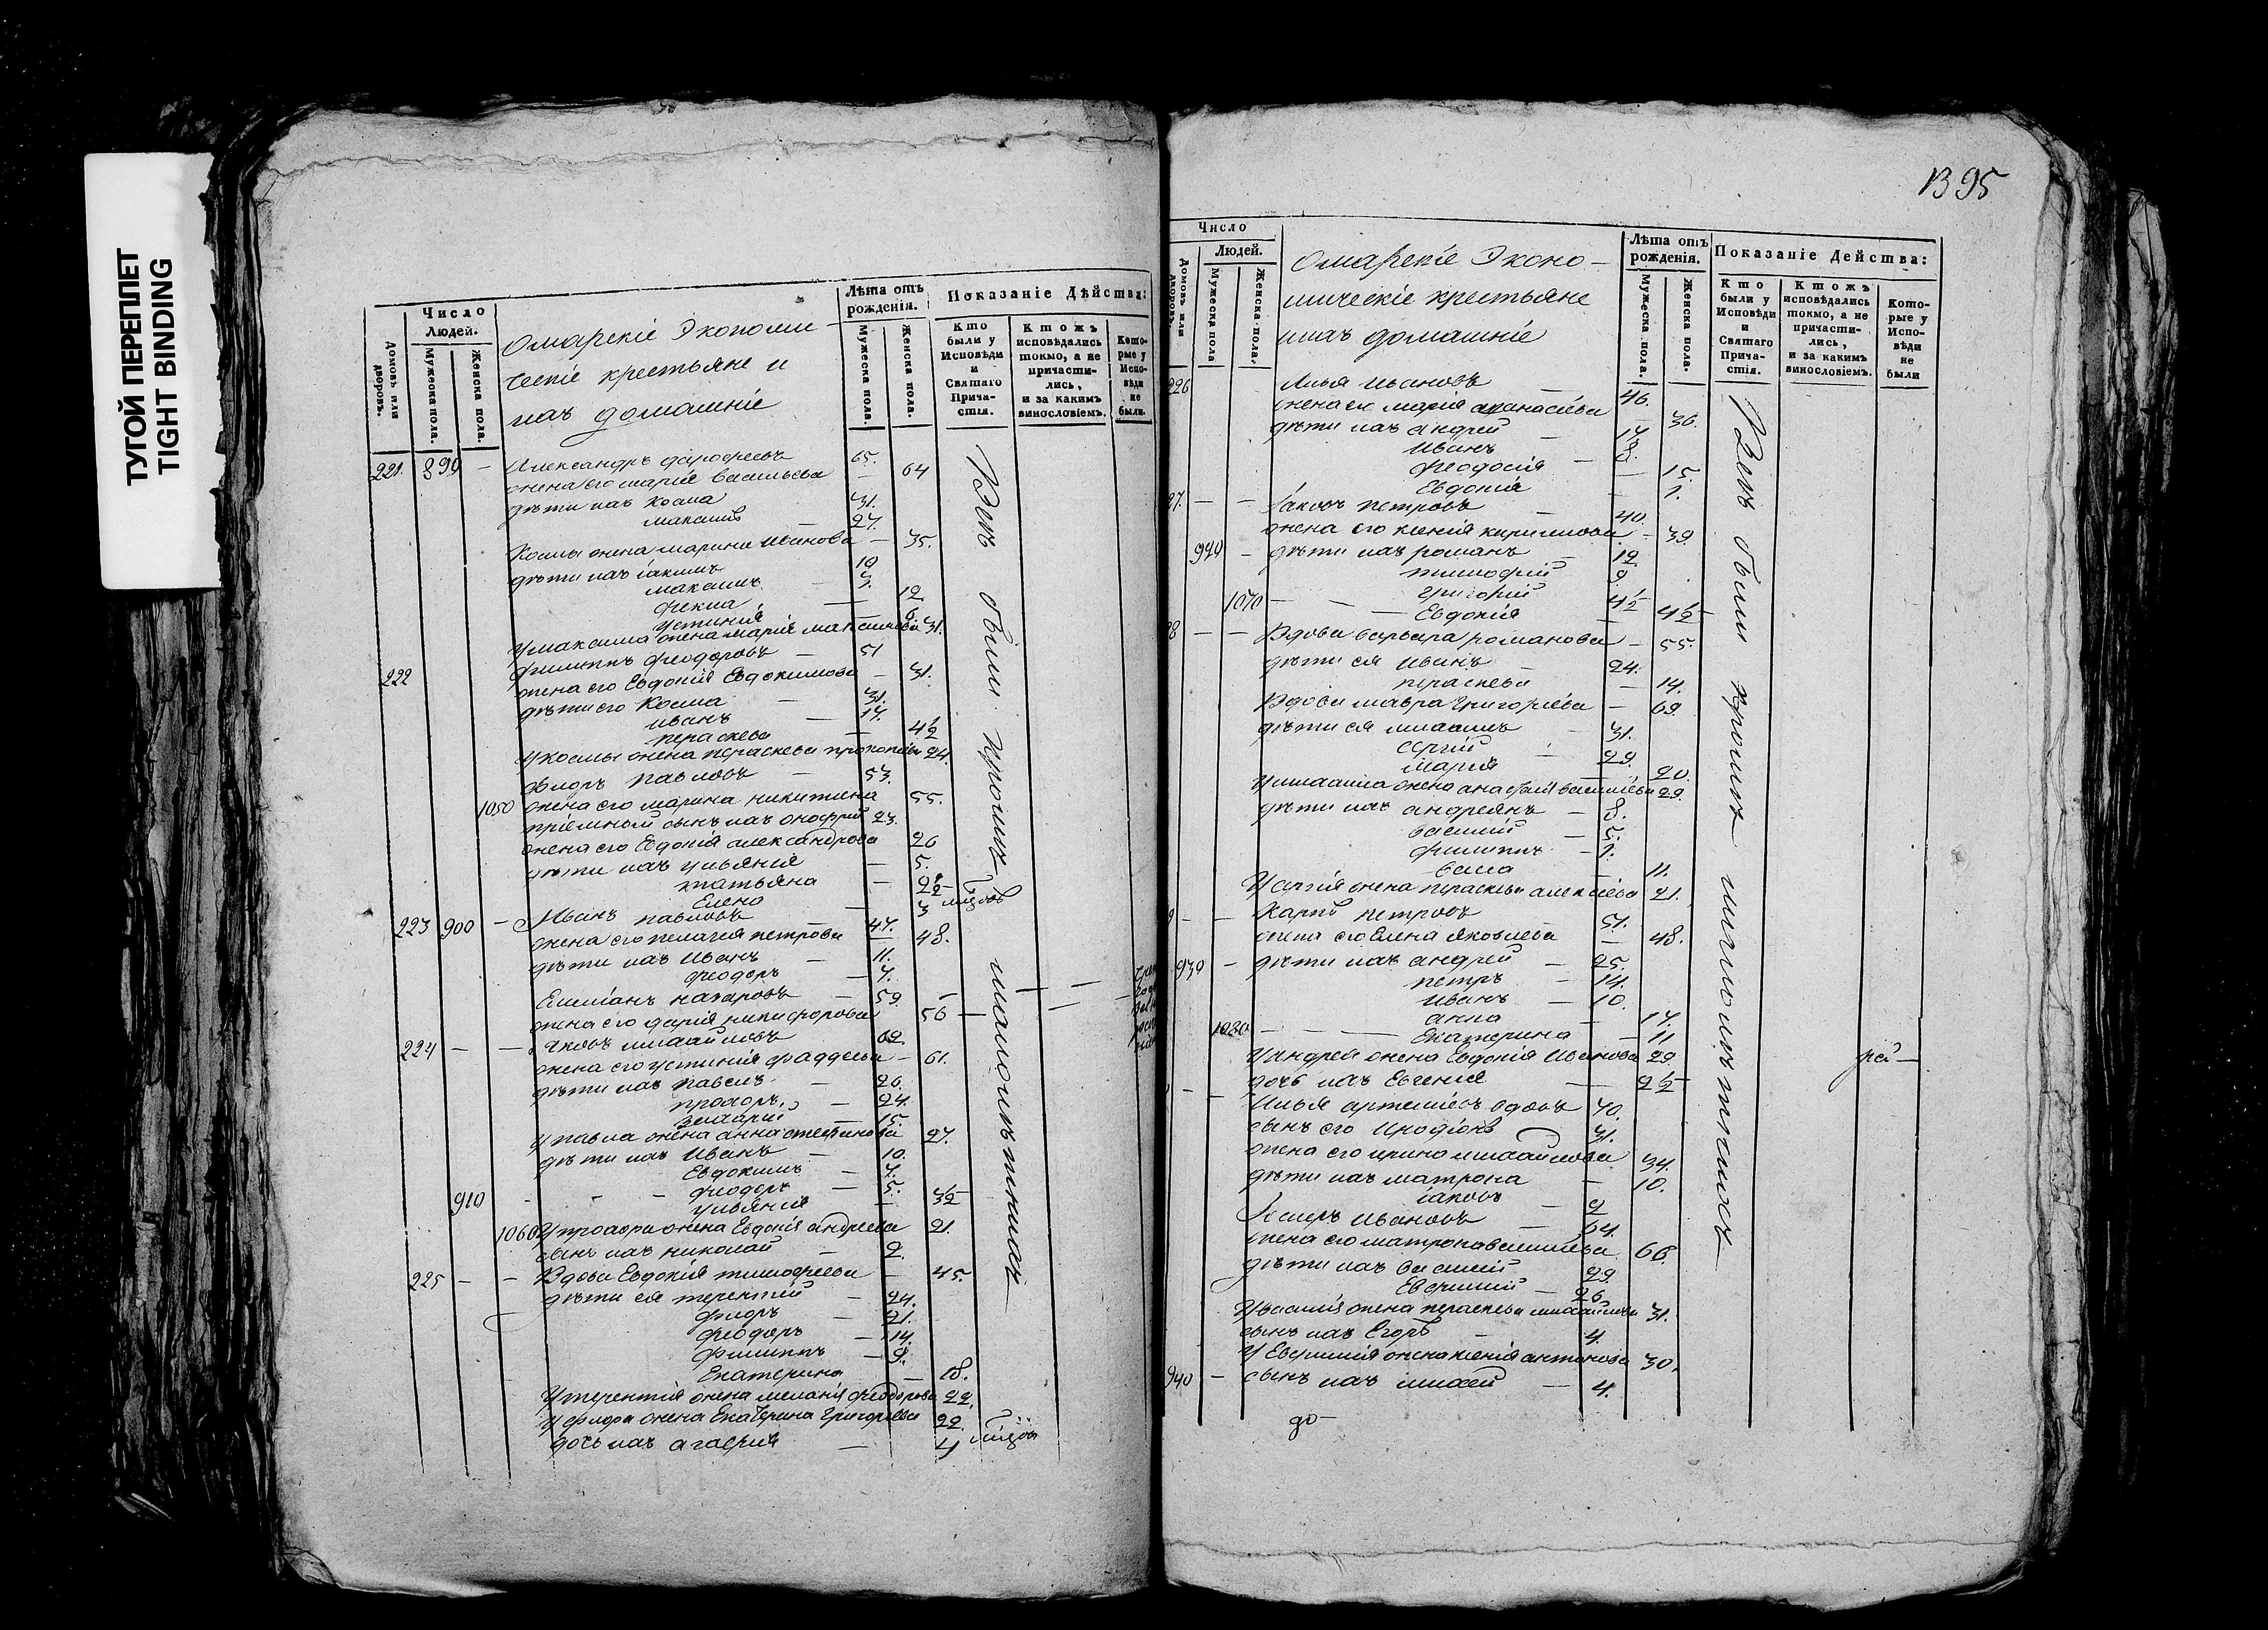 ТУГОЙ ПЕРЕПЛЕТ
TIGHT BINDING
Число
Людей.
Домовъ или дворовъ.
Мужеска пола.
Женска пола.
Омарскіе Экономи-
ческіе крестьяне и
ихъ домашніе
Лѣта отъ рожденія.
Мужеска пола
Женска пола.
Показаніе Дѣйства:
Кто были у Исповѣди и Святаго Прича-стія.
Ктожъ исповѣдались токмо, а не причасти-лись, и за какимъ винословіемъ.
Кото-рые у Испо-вѣди не были.
221. 899 — Александръ 65.
жена его марія васильева — 64
дѣти ихъ Косма 31.
максимъ — 27.
Космы жена марина Иванова — 35.
дѣти ихъ іакимъ 10
максимъ 7.
фекла — 12
устинія — 6.
У максима жена марія 31.
222 Филиппъ Феодоровъ — 51
жена его Евдокія Евдокимова — 31.
дѣти его Косма — 31.
иванъ — 17.
пераскева — 4½
У космы жена пераскева прокопіева 24.
Флоръ Павловъ — 53.
1050 жена его марина никитина 55.
пріемный сынъ ихъ онофрій 23.
жена его Евдокія александрова 26
дѣти ихъ ульянія — 5.
татьяна — 2½
Елена 3
223 900 — Иванъ павловъ — 47.
жена его пелагея петрова — 48.
дѣти ихъ Иванъ — 11.
феодоръ — 7.
Емиліанъ назаровъ — 59
жена его дарія никифорова 56 —
224 — — Яковъ михайловъ 62.
жена его устинія фаддеева — 61.
дѣти ихъ павелъ — 26.
прохоръ — 24.
15.
У павла жена анна стефанова 27.
дѣти ихъ Иванъ — 10.
Евдокимъ — 7.
910 - - - феодоръ — 5.
ульянія 3½
1060 У прохора жена Евдокія андреева 21.
сынъ ихъ николай — 2.
225 — — Вдова Евдокія тимофеева — 45.
дѣти ея терентій — 24.
флоръ — 21.
феодоръ — 14.
филиппъ — 9.
Екатерина — 18.
У терентія жена меланія феодорова 22.
У флора жена Екатерина григорьева 22.
дочь ихъ агафія — 4
Всѣ были кромѣ малолѣтнихъ —
1395
Число
Людей.
Домовъ или дворовъ.
Мужеска пола
Женска пола.
Омарскіе Эконо-
мическіе крестьяне
ихъ домашніе
Лѣта отъ рожденія.
Мужеска пола.
Женска пола.
Показаніе Действа:
Кто были у Исповѣди и Святаго Прича-стія.
Ктожъ исповѣдались токмо, а не причасти-лись, и за какимъ винословіемъ.
Кото-рые у Испо-вѣди не были
226 Илья Ивановъ — 46.
жена его марія афанасіева 36.
дѣти ихъ андрей — 17
Иванъ 8.
феодосія — 15.
Евдокія — 1.
27. — — Іаковъ петровъ — 40.
жена его ксенія кирилова — 39
929 — дѣти ихъ романъ — 12.
тимофей 9.
григорій 4½
1070 — — — Евдокія — 4½
28 — — Вдова варвара романова — 55.
дѣти ея Иванъ — 24.
пераскева — 14.
Вдова мавра григоріева — 69.
дѣти ея михаилъ — 31.
сергій 29.
марія — 20.
У михаила жена васильева 29.
дѣти ихъ андреянъ — 8.
василій — 5.
филиппъ — 1.
— 11.
У сергія жена пераскева алексіева 21.
9 — — Карпъ петровъ — 51.
жена его Елена яковлева — 48.
930 — дѣти ихъ андрей — 25.
петръ — 14.
Иванъ — 10.
анна — 17.
1080 — — — Екатерина — 11
У андрея жена Евдокія Иванова 29
дочь ихъ Евгенія — 2½
Илья артеміевъ вдовъ 70.
сынъ его Иродіонъ 31.
жена его ирина михайлова 34.
дѣти ихъ матрона — 10.
іаковъ — 2
Ивановъ — 64.
жена его матрона васильева 66.
дѣти ихъ василій 29.
— 26
У василія жена пераскева михайлова 31.
сынъ ихъ Егоръ — 4.
жена ксенія антонова 30.
940 — сынъ ихъ михей — 4.
до-
Всѣ были кромѣ малолѣтнихъ —